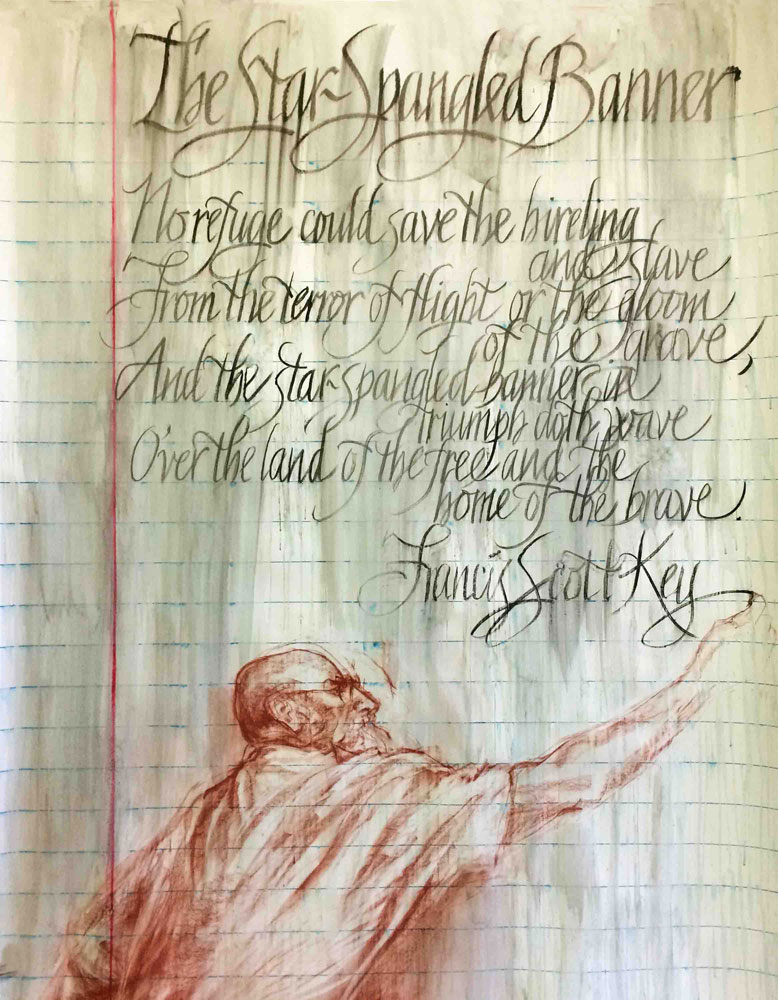 The Star-Spangled Banner
No refuge could save the hireling
and slave
From the terror of flight or the gloom
of the grave,
And the star-spangled banner in
triumph doth wave
O'er the land of the free and the
home of the brave.
Francis Scott Key